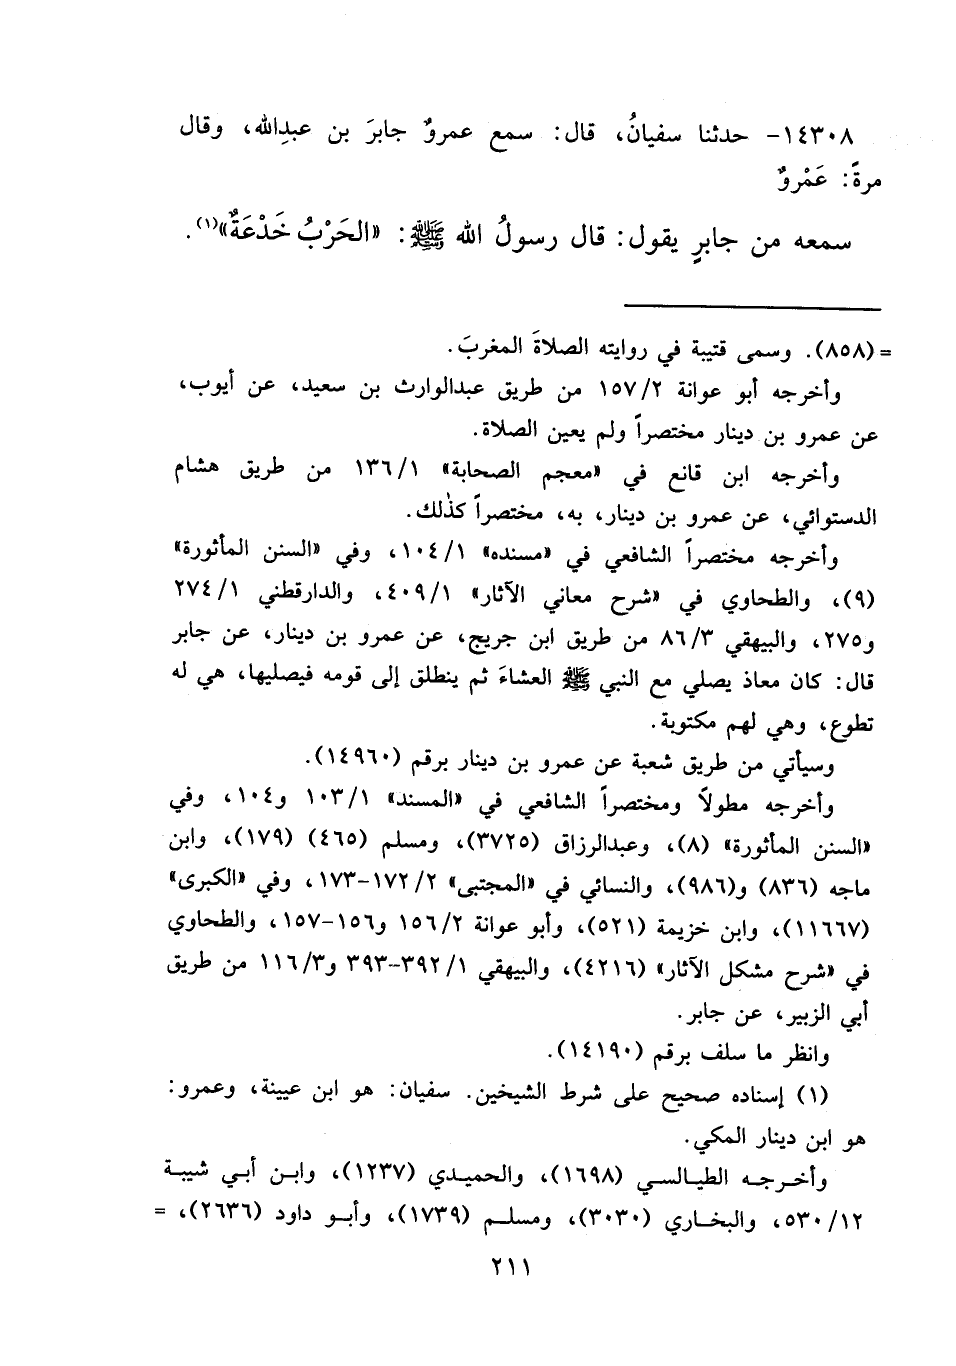 ١٤٣٠٨- حدثنا سفيانُ، قال: سمع عمروٌ جابرَ بن عبدِالله، وقال
مرةً: عَمْروٌ
سمعه من جابرٍ يقول: قال رسولُ الله ﷺ: «الحَرْبُ خَدْعَةٌ»(١).
= (٨٥٨). وسمى قتيبة في روايته الصلاةَ المغربَ.
وأخرجه أبو عوانة ١٥٧/٢ من طريق عبدالوارث بن سعيد، عن أيوب،
عن عمرو بن دينار مختصراً ولم يعين الصلاة.
وأخرجه ابن قانع في «معجم الصحابة» ١٣٦/١ من طريق هشام
الدستوائي، عن عمرو بن دينار، به، مختصراً كذٰلك.
وأخرجه مختصراً الشافعي في «مسنده» ١٠٤/١، وفي «السنن المأثورة»
(٩)، والطحاوي في «شرح معاني الآثار» ٤٠٩/١، والدارقطني ٢٧٤/١
و٢٧٥، والبيهقي ٨٦/٣ من طريق ابن جريج، عن عمرو بن دينار، عن جابر
قال: كان معاذ يصلي مع النبي ﷺ العشاءَ ثم ينطلق إلى قومه فيصليها، هي له
تطوع، وهي لهم مكتوبة.
وسيأتي من طريق شعبة عن عمرو بن دينار برقم (١٤٩٦٠).
وأخرجه مطولاً ومختصراً الشافعي في «المسند» ١٠٣/١ و١٠٤، وفي
«السنن المأثورة» (٨)، وعبدالرزاق (٣٧٢٥)، ومسلم (٤٦٥) (١٧٩)، وابن
ماجه (٨٣٦) و(٩٨٦)، والنسائي في «المجتبى» ١٧٢/٢-١٧٣، وفي «الكبرى»
(١١٦٦٧)، وابن خزيمة (٥٢١)، وأبو عوانة ١٥٦/٢ و١٥٦-١٥٧، والطحاوي
في «شرح مشكل الآثار» (٤٢١٦)، والبيهقي ٣٩٢/١-٣٩٣ و١١٦/٣ من طريق
أبي الزبير، عن جابر.
وانظر ما سلف برقم (١٤١٩٠).
(١) إسناده صحيح على شرط الشيخين. سفيان: هو ابن عيينة، وعمرو:
هو ابن دينار المكي.
وأخرجه الطيالسي (١٦٩٨)، والحميدي (١٢٣٧)، وابن أبي شيبة
٥٣٠/١٢، والبخاري (٣٠٣٠)، ومسلم (١٧٣٩)، وأبو داود (٢٦٣٦)، =
٢١١